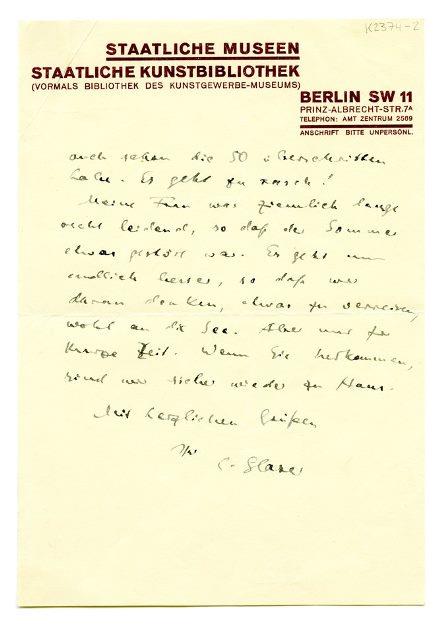 K2374-2
STAATLICHE MUSEEN
STAATLICHE KUNSTBIBLIOTHEK
(VORMALS BIBLIOTHEK DES KUNSTGEWERBE-MUSEUMS)
BERLIN SW 11
PRINZ-ALBRECHT-STR.7A
TELEPHON: AMT ZENTRUM 2589
ANSCHRIFT BITTE UNPERSÖNL.
auch schon die 50 überschritten
habe. Es geht zu rasch!
Meine Frau war ziemlich lange
recht leidend, so daß der Sommer
etwas gestört war. Es geht nun
endlich besser, so daß wir
daran denken, etwas zu verreisen,
wohl an die See. Aber nur für
kurze Zeit. Wenn Sie herkommen,
sind wir sicher wieder zu Haus.
Mit herzlichen Grüßen
Ihr
C. Glaser